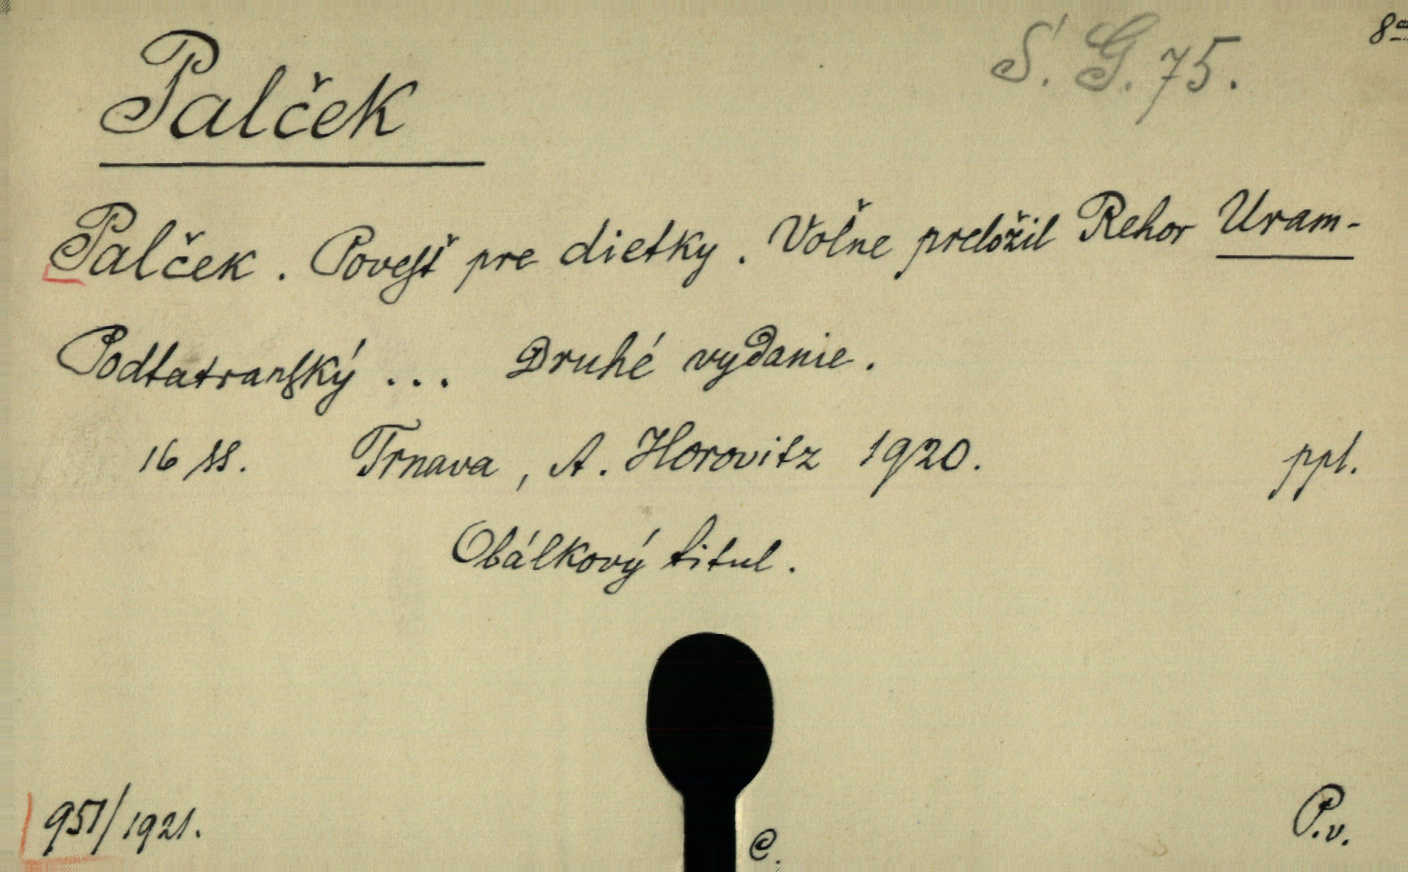 S. G. 75.
8°
Palček
Palček. Povesť pre dietky. Voľne preložil Rehor Uram-
Podtatranský ... Druhé vydanie.
16 ss. Trnava, A. Horovitz 1920. ppl.
Obálkový titul.
951/1921.
C.
P.v.